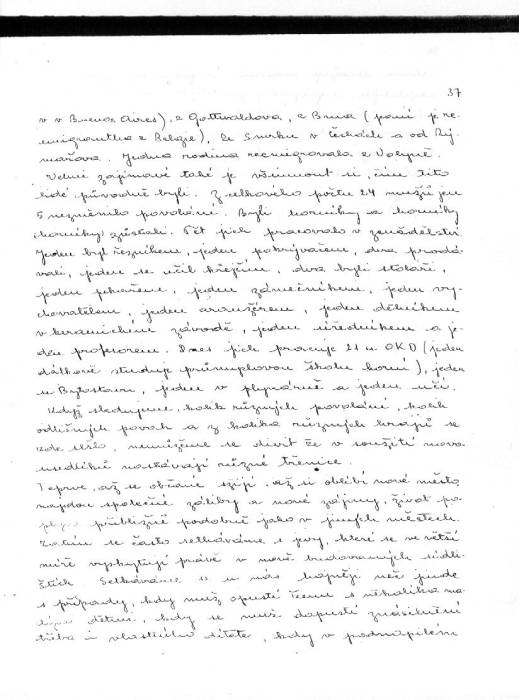 37
v v Buenos Aires), z Gottwaldova, z Brna (paní je re-
emigrantka z Belgie), ze Smrku v Čechách a od Rý-
mařova. Jedna rodina reemigrovala z Volyně.
Velmi zajímavé také je všimnout si, čím tito
lidé původně byli. Z celkového počtu 24 mužů jen
5 nezměnilo povolání. Byli horníky a horníky
(horníky) zůstali. Pět jich pracovalo v zemědělství
Jeden byl řezníkem, jeden pokrývačem, dva prodá-
vali, jeden se učil krejčím, dva byli stolaři,
jeden pekařem, jeden zámečníkem, jeden vy-
chovatelem, jeden aranžérem, jeden dělníkem
v keramickém závodě, jeden úředníkem a je-
den profesorem. Dnes jich pracuje 21 u OKD (jeden
dálkově studuje průmyslovou školu horní), jeden
u Bytostavu, jeden v plynárně a jeden učí.
Když sledujeme, kolik různých povolání, kolik
odlišných povah a z kolika různých krajů se
zde sešlo, nemůžeme se divit že v soužití novo-
usedlíků nastávají různé třenice.
Teprve, až se občané sžijí, až si oblíbí nové město
najdou společné záliby a nové zájmy, život po-
plyne přibližně podobně jako v jiných městech.
Zatím se často setkáváme s jevy, které se ve větší
míře vyskytují právě v nově budovaných sídli-
štích. Setkáváme se u nás nejen
s případy, kdy muž opustí ženu s několika ma-
lými dětmi, kdy se muž dopustí znásilnění
třeba i vlastního dítěte, kdy v podnapilém